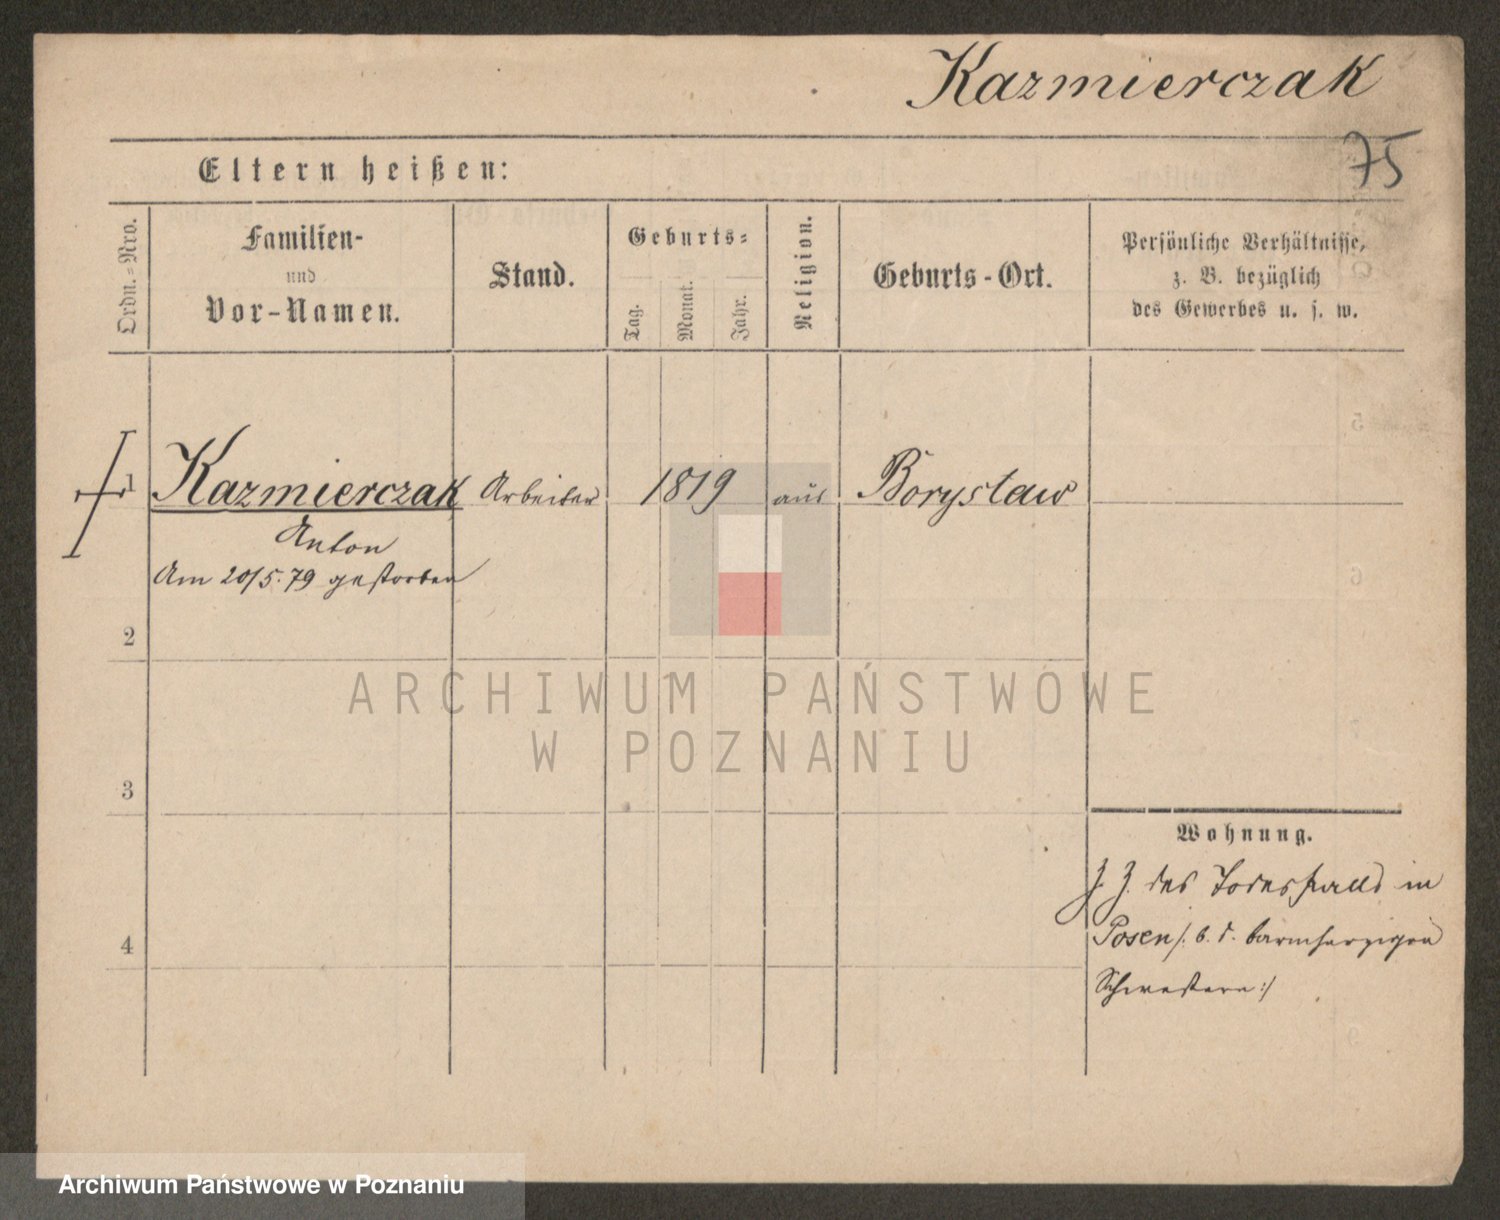 Kazmierczak
75
Eltern heißen:
Ordn.-Nro.
Familien-
und
Vor-Namen.
Stand.
Geburts-
Tag.
Monat.
Jahr.
Religion.
Geburts-Ort.
Persönliche Verhältnisse,
z. B. bezüglich
des Gewerbes u. s. w.
1 Kazmierczak Arbeiter 1819 aus Borysław
Anton
Am 20/5. 79 gestorben
2
3
4
Wohnung.
z. Z. des Todesfalls in
Posen /: b. d. barmherzigen
Schwestern :/
ARCHIWUM PAŃSTWOWE
W POZNANIU
Archiwum Państwowe w Poznaniu